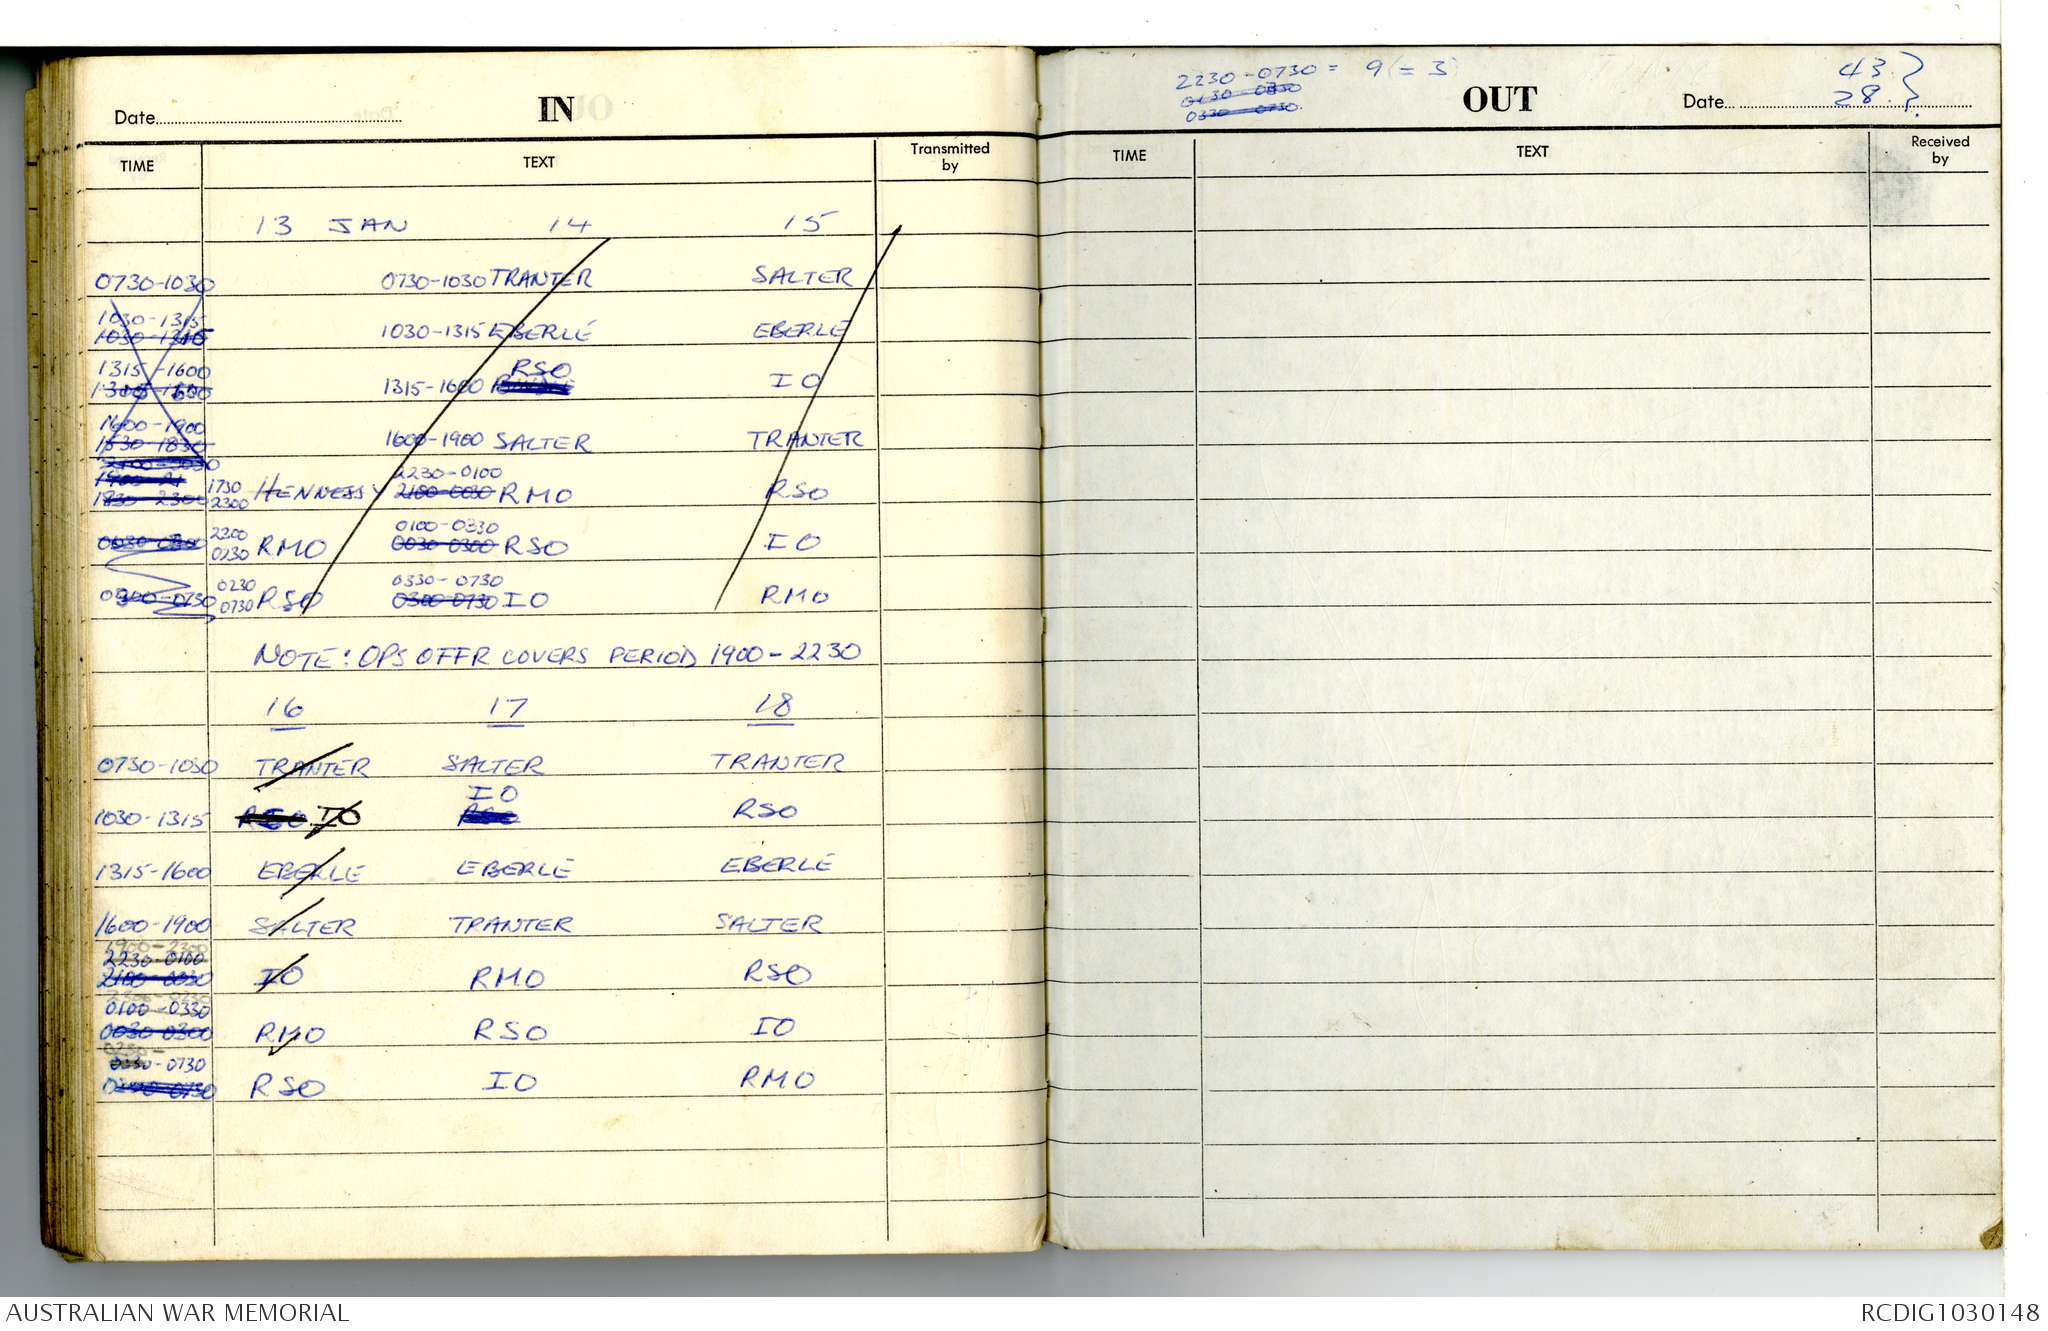 Date
IN
TIME
TEXT
Transmitted by
13 JAN 14 15
0730-1030 0730-1030 TRANTER SALTER
1030-1315
1030-1315 1030-1315 EBERLE EBERLE
1315-1600 RSO
1315-1600 IO
1600-1900
1530-1830 1600-1900 SALTER TRANTER
2230-0100
1830-2300 1730 2300 HENNESSY 2100-0030 RMO RSO
2300 0100-0330
0230 RMO 0030-0300 RSO IO
0230 0330-0730
0300-0730 0730 RSO 0300-0730 IO RMO
NOTE: OPS OFFR COVERS PERIOD 1900-2230
16 17 18
0730-1030 TRANTER SALTER TRANTER
IO
1030-1315 RSO IO RSO RSO
1315-1600 EBERLE EBERLE EBERLE
1600-1900 SALTER TRANTER SALTER
1900-2300
2230-0100
2100-0030 IO RMO RSO
0100-0330
0030-0300 RMO RSO IO
0330-0730
0300-0730 RSO IO RMO
2230-0730 = 9 (= 3)
0330 0730
43
28 ?
OUT
Date
TIME
TEXT
Received by
AUSTRALIAN WAR MEMORIAL
RCDIG1030148